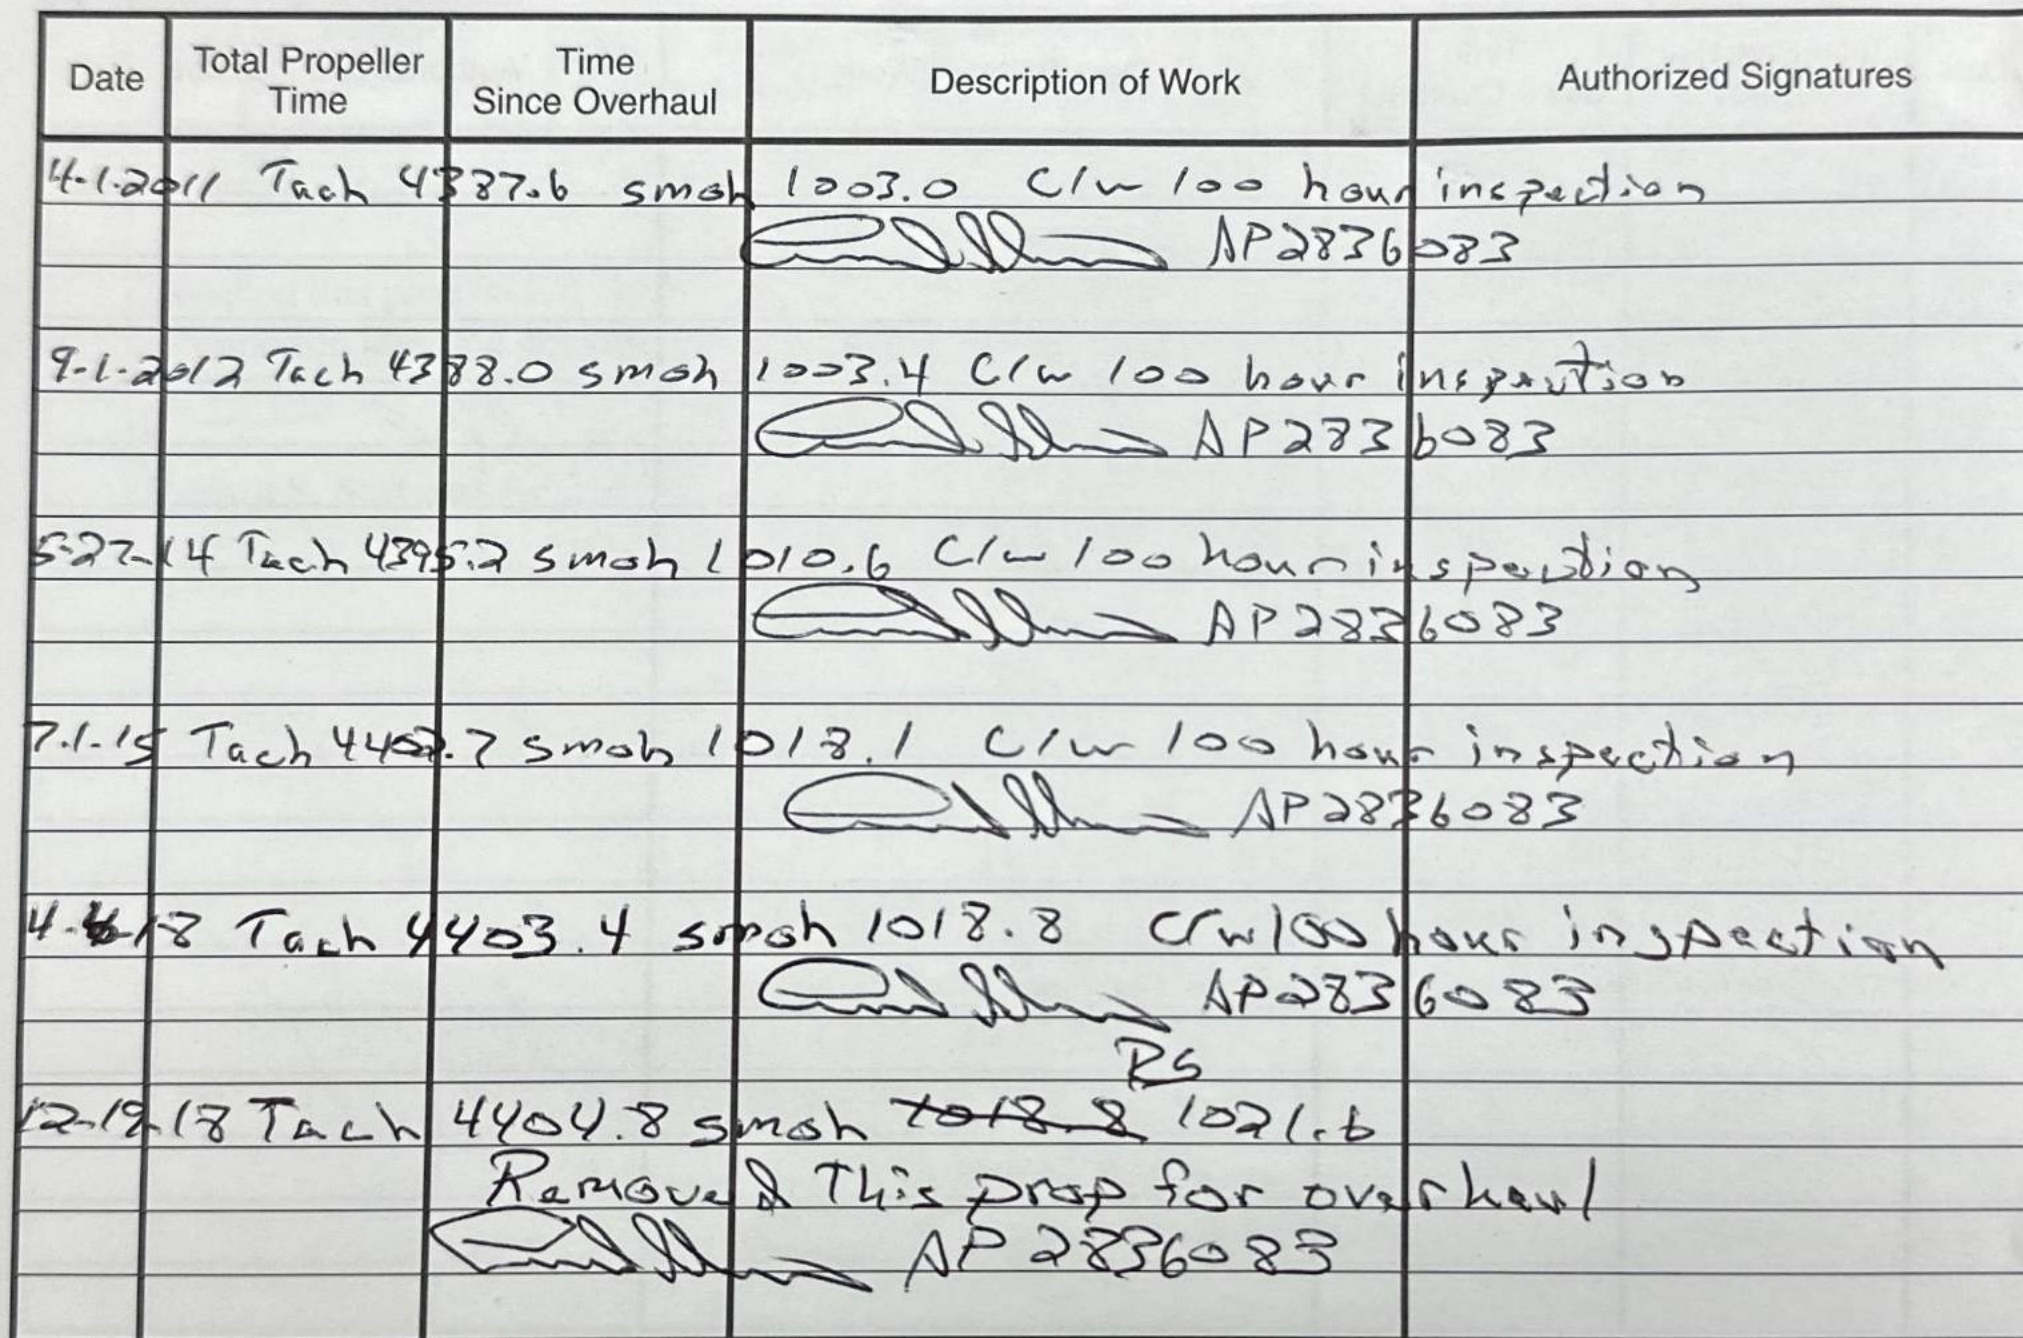 Date Total Propeller Time Time Since Overhaul Description of Work Authorized Signatures
4-1-2011 Tach 4387.6 smoh 1003.0 C/w 100 hour inspection
AP2836083
9-1-2012 Tach 4388.0 smoh 1003.4 C/w 100 hour inspection
AP2836083
5-27-14 Tach 4395.2 smoh 1010.6 C/w 100 hour inspection
AP2836083
7-1-15 Tach 4402.7 smoh 1018.1 C/w 100 hour inspection
AP2836083
Tach 4403.4 smoh 1018.8 C/w 100 hour inspection
AP2836083
RS
12-19-18 Tach 4404.8 smoh 1018.8 1021.6
Removed This prop for overhaul
AP 2836083